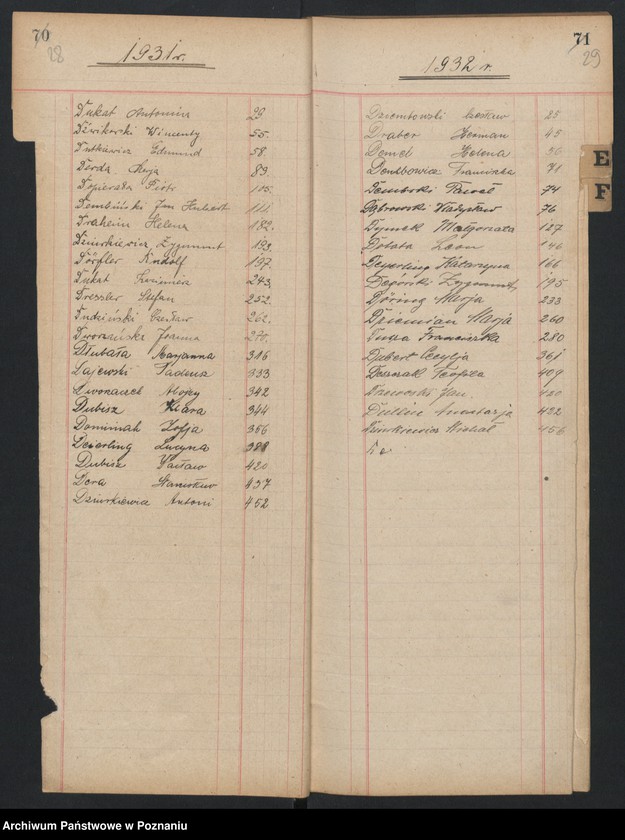 70
28
1931 r.
Dukat Antonina 29
Dźwikowski Wincenty 55.
Dutkiewicz Edmund 58.
Dorda Marja 89.
Dopierała Piotr 105.
Dembiński Jan Hubert 111
Draheim Helena 182.
Dziurkiewicz Zygmunt 192.
Dörfler Rudolf 197.
Dukat Kazimierz 243.
Dressler Stefan 252.
Dudziński Czesław 262.
Dworzańska Joanna 270.
Dłubała Marjanna 316
Dajewski Tadeusz 333
Dwornauch Alojzy 342
Dubisz Klara 344
Dominiak Zofja 356
Deierling Lucyna 388
Dubisz Wacław 420
Dera Stanisław 437
Dziurkiewicz Antoni 452
71
29
1932 r.
Dziembowski Czesław 25
Draber Herman 45
Demel Helena 36
Franciszka 71
Dembski 74
Dąbrowski Władysław 76
Dymek Małgorzata 127
Dolata Leon 146
Deyerling Katarzyna 166
Depoński Zygmunt 195
Döring Marja 233
Dziemian Marja 260
Duda Franciszka 280
Dubert Cecylja 361
Deszczak Teofila 409
Jan. 420
Dulline Anastazja 422
Dziurkiewicz Michał 456
E
F
Archiwum Państwowe w Poznaniu